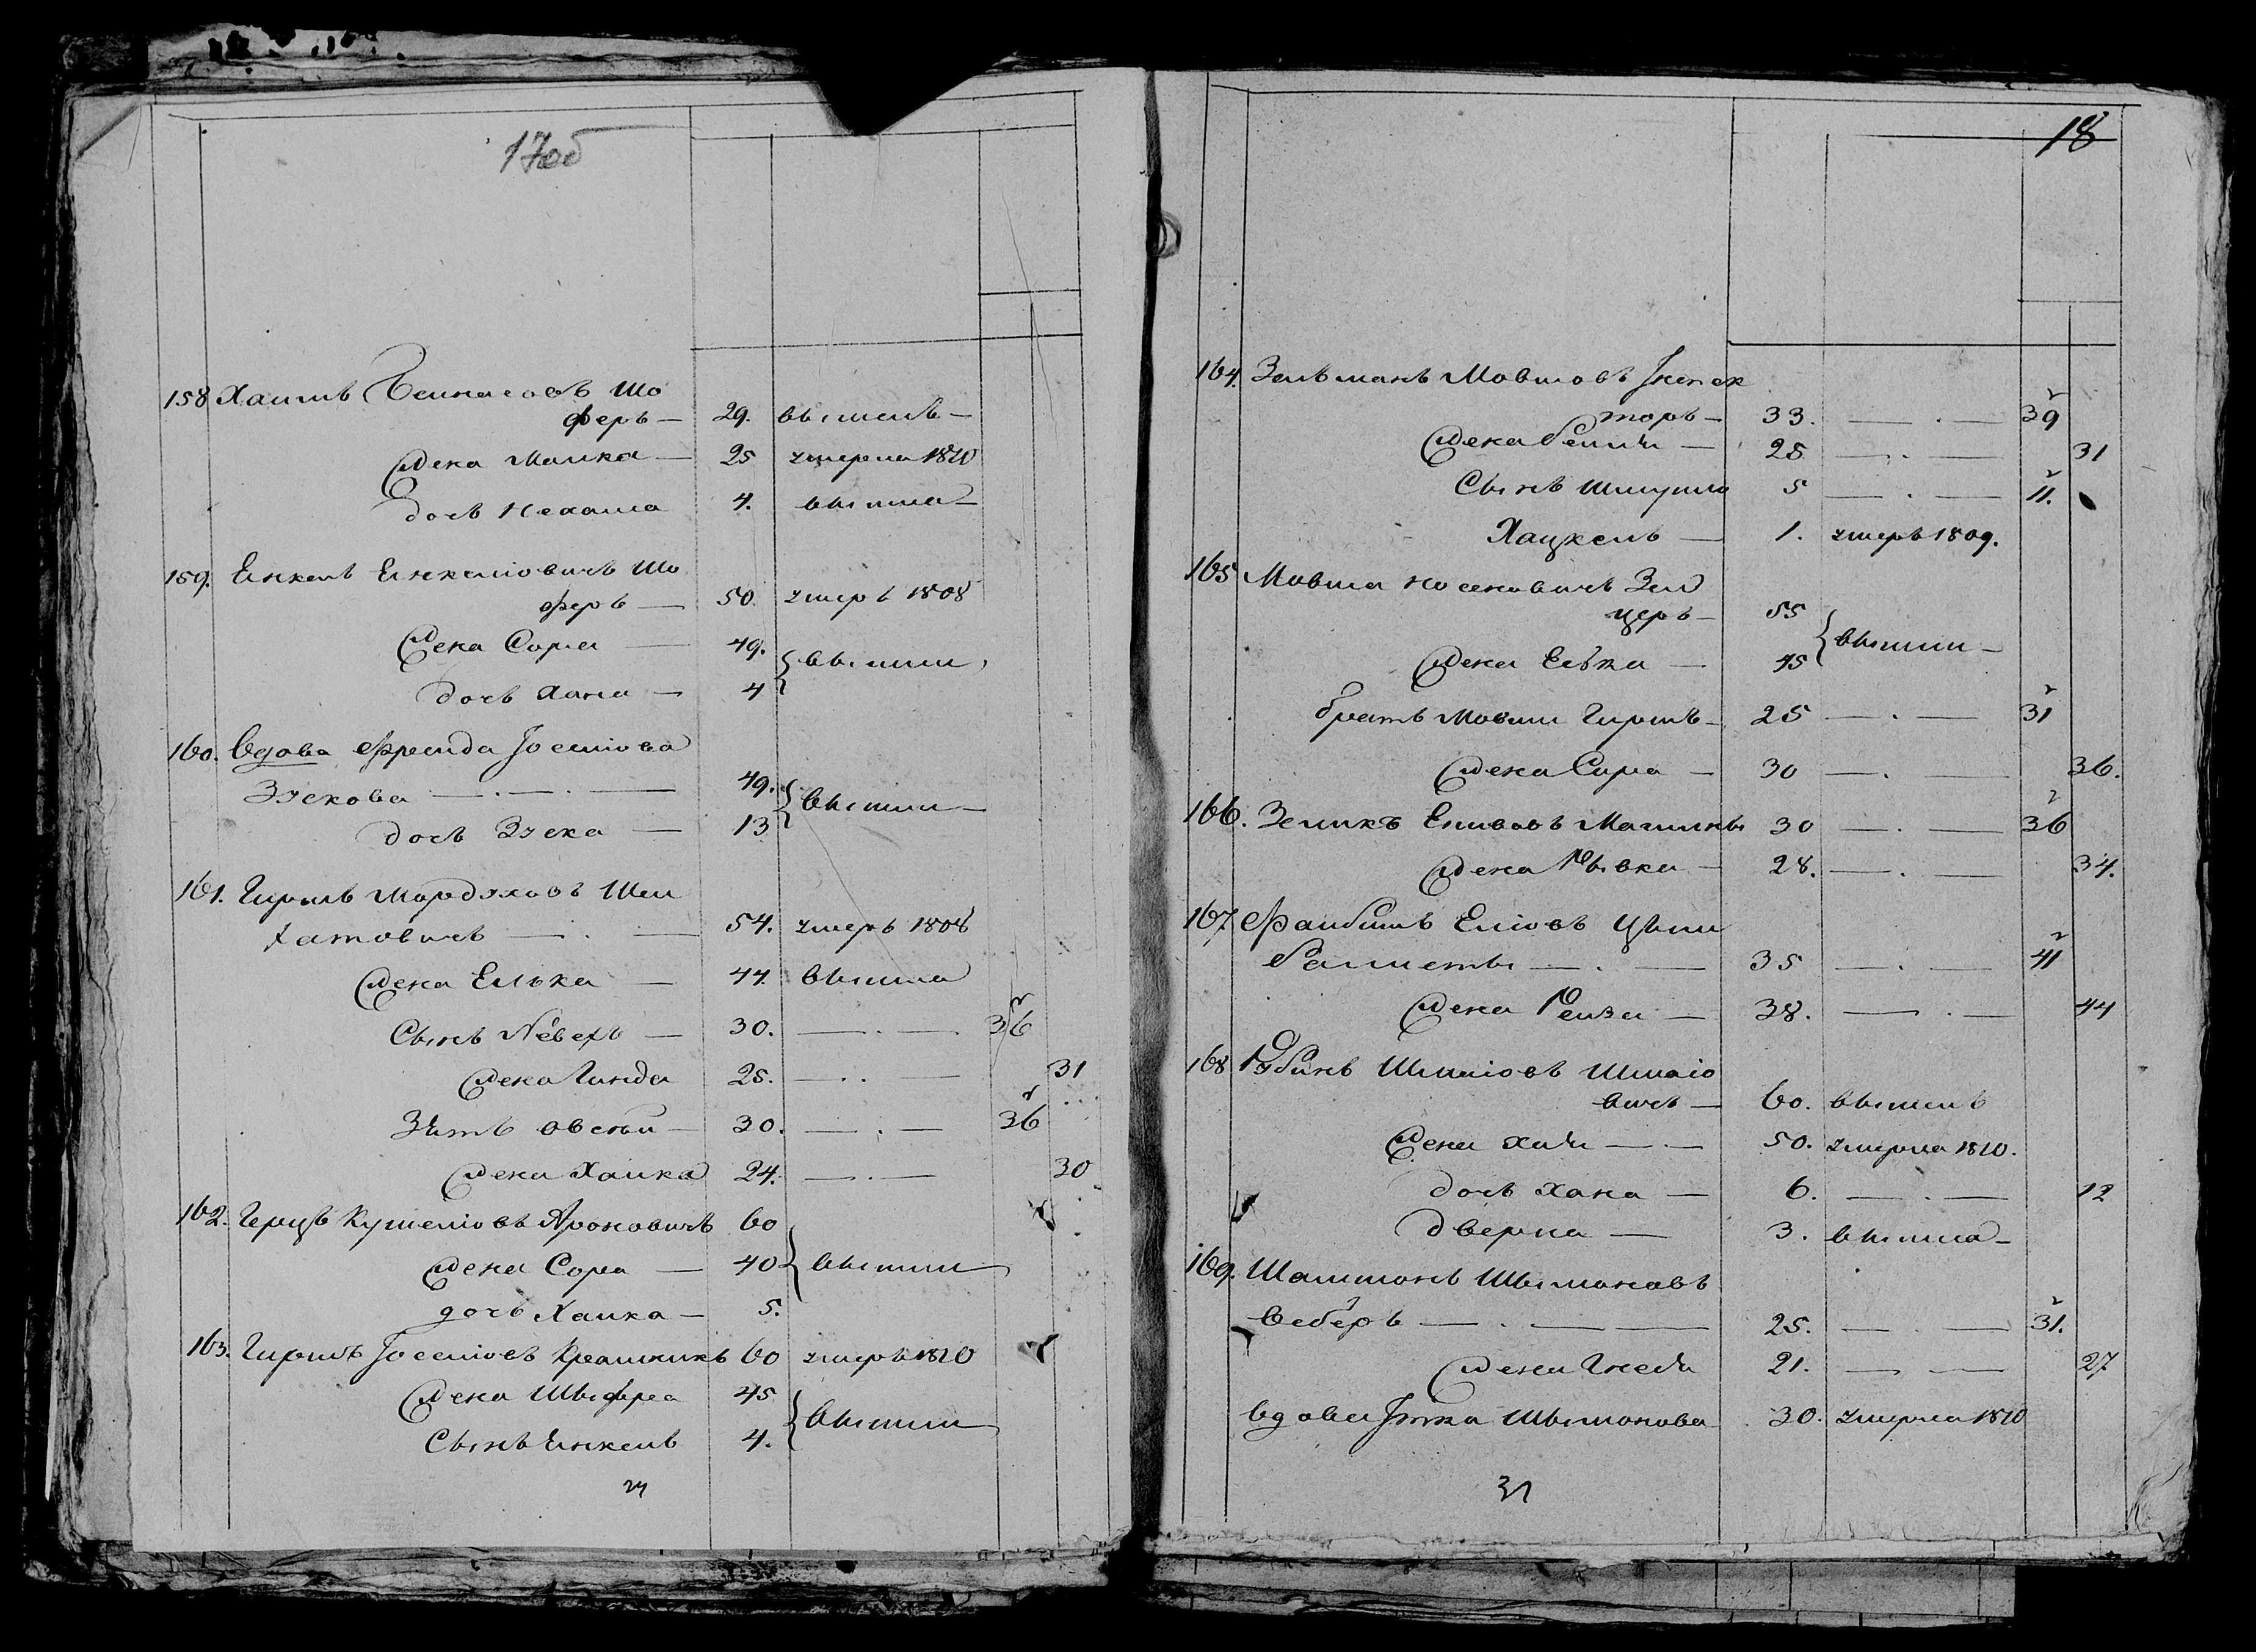 17об
158 Хаимъ Бенкасовъ Шо
феръ — 29. вышелъ —
жена Малка — 25 умерла 1810
дочь Нехама 4. вышла —
159. Енкель Енкелiовичъ Шо
феръ — 50. умеръ 1808
жена Сора — 49. вышли
дочь Хана — 4
160. Вдова Фрейда Iоселiова
Зускова — . — . — 49. вышли —
дочь Зуска — 13
161. Гиршъ Мордуховъ Шеи
хатовичъ — . — 54. умеръ 1808
жена Елька — 44. вышла
сынъ Лейбехъ — 30. — . — 36
жена Гинда 25. — . — 31
Зять Овсей — 30. — . — 36
жена Хаика 24. — . — 30
162. Герцъ Кушелiовъ Ароновичъ 60
жена Сора — 40 вышли
дочь Хаика — 5.
163. Гиршъ Iоселiовъ Крашникъ 60 умеръ 1810
жена Шыфра 45
сынъ Енкель 4. вышли
24
18
164. Зельманъ Мовшовъ Iнспек
торъ — 33. — . — 39
жена Бейля — 25 — . — 31
Сынъ Шмуйло 5 — . — 11.
Хацкель — 1. умеръ 1809.
165 Мовша Носеновичъ Зел
церъ — 55
жена Евка — 45 вышли —
братъ Мовши Гиршъ — 25 — . — 31
жена Сора — 30 — . — 36.
166. Зеликъ 30 — . — 36
жена Рывка — 28. — . — 34.
167 Файбишъ Елiовъ Цым
балисты — . — 35 — . — 41
жена Рейза — 38. — . — 44
168 Рубинъ Шмаiовъ Шмаiо
вичъ — 60. вышелъ
жена Хая — — 50. умерла 1810.
дочь Хана — 6. — . — 12
Дверка — 3. вышла —
169. Шлиомонъ Шымоновъ
Веберъ — . — — 25. — . — 31.
жена Гнеся 21. — — 27
Вдова Iтка Шымонова 30. умерла 1810
31